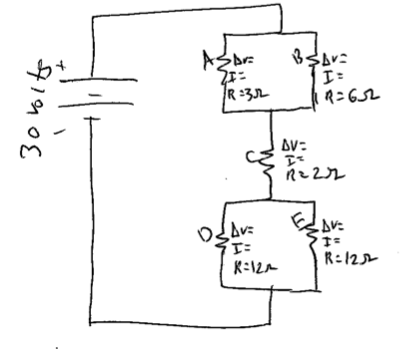 30 volts
+
−
A ΔV=
I=
R=3Ω
B ΔV=
I=
R=6Ω
C ΔV=
I=
R=2Ω
D ΔV=
I=
R=12Ω
E ΔV=
I=
R=12Ω